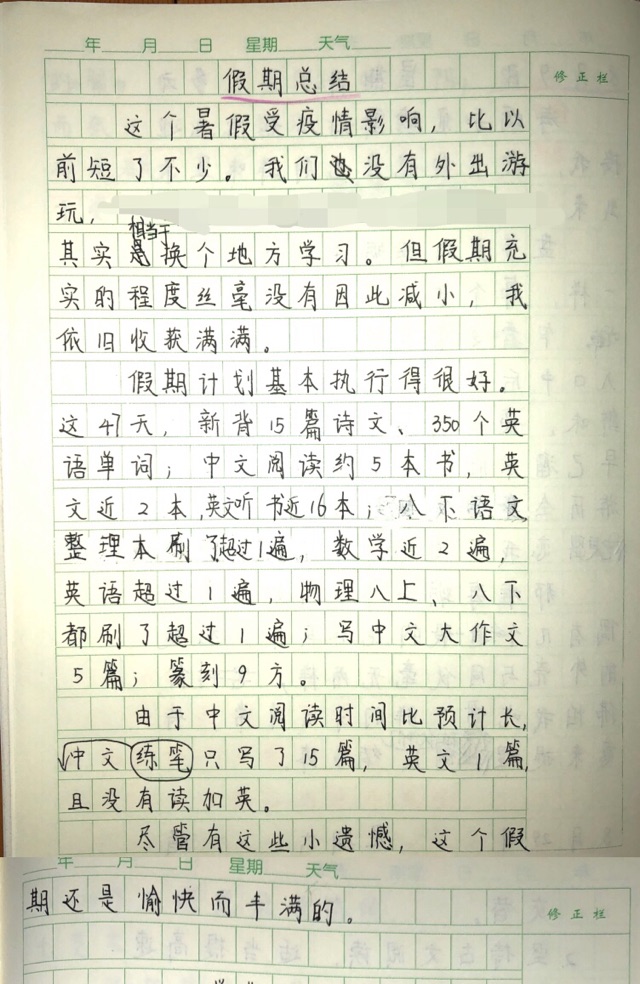 年 月 日 星期 天气
修正栏
假期总结
这个暑假受疫情影响，比以
前短了不少。我们也没有外出游
玩，
相当于
其实是换个地方学习。但假期充
实的程度丝毫没有因此减小，我
依旧收获满满。
假期计划基本执行得很好。
这47天，新背15篇诗文、350个英
语单词；中文阅读约5本书，英
文近2本，英文听书近16本；八下语文
整理本刷了超过1遍，数学近2遍，
英语超过1遍，物理八上、八下
都刷了超过1遍；写中文大作文
5篇；篆刻9方。
由于中文阅读时间比预计长，
中文练笔只写了15篇，英文1篇，
且没有读加英。
尽管有这些小遗憾，这个假
年 月 日 星期 天气
期还是愉快而丰满的。
修正栏